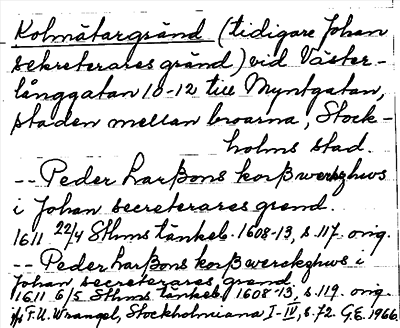 Kolmätargränd (tidigare Johan
sekreterares gränd) vid Väster-
långgatan 10-12 till Myntgatan,
staden mellan broarna, Stock-
holms stad.
-- Peder Larßons korßwerkhws
i Johan secreterares grend.
1611 22/4 Sthms tänkeb. 1608-13, s. 117. orig.
-- Peder Larßons korßwerckghws i
Johan secreterares grend.
1611 6/5 Sthms tänkeb. 1608-13, s. 119. orig.
F.U. Wrangel, Stockholmiana I-IV, s. 72. G.E. 1966.